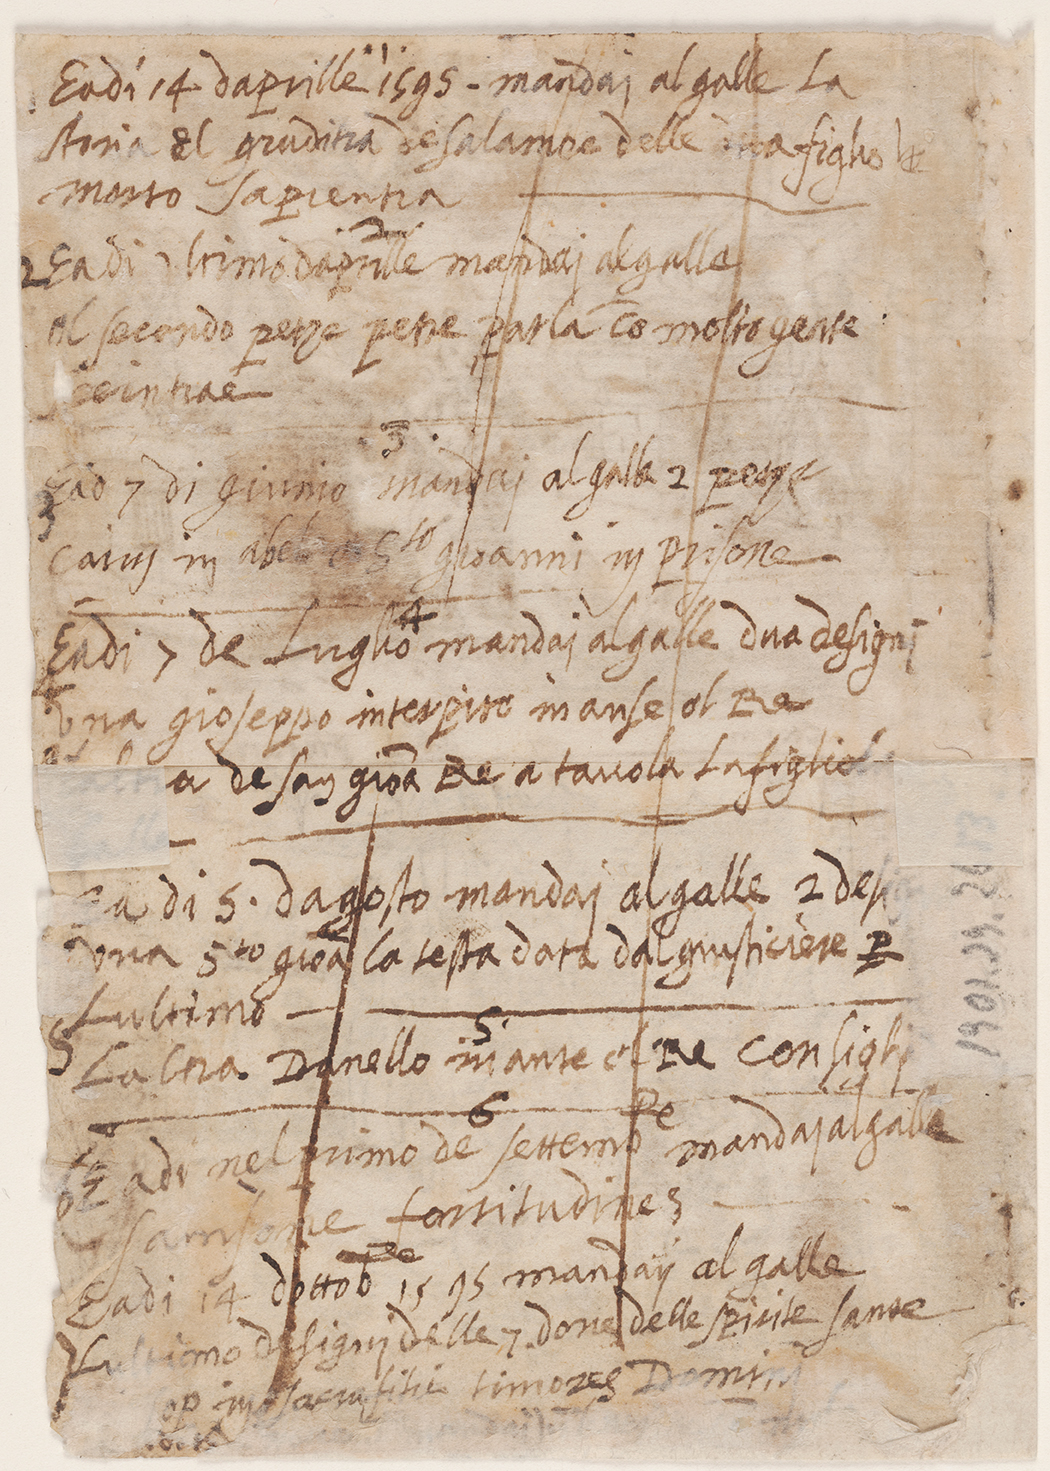 Eadi 14 daprille 1595 - mandaj al galle La
storia del giuditia de salamoe delle dua figlio
morto Sapientia
2
2 Eadi ultimo daprille mandaj al galle
ol secondo petze petre parla cō molto gente
scintiae
3
Ead 7 di giunio mandaj al galle 2 petze
3
caiuj in abel sto giovanni in prisone
4
Eadi 7 de Luglio mandaj al galle dua designj
una gioseppo interpito inanse ol Re
a de san gioā Re a tavola La figlio
Ea di 5. dagosto mandaj al galle 2 des
una sto gioā la testa data dal giusticiere P
Lultimo
5
5 Laltra Danello in ante ol Re Consiglj
6
6 Eadi nel primo de settemb re mandaj al galle
Sansone fortitudines
Eadi 14 dottob re 1595 mandaij al galle
Lultimo designj delle 7 done delle spirite sante
op in timores Domini
1901.39.2613